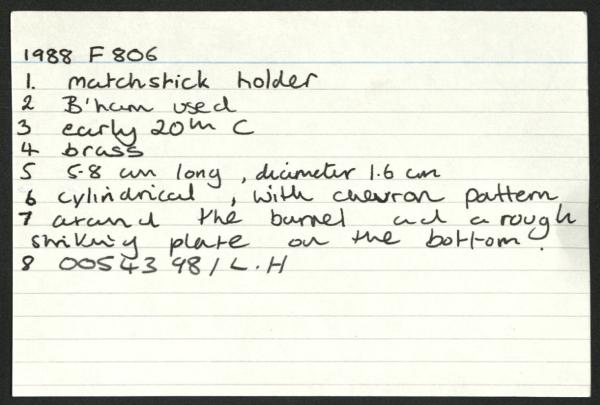 1988 F 806
1. matchstick holder
2 B'ham used
3 early 20th C
4 brass
5 5.8 cm long, diameter 1.6 cm
6 cylindrical, with chevron pattern
7 around the barrel and a rough
striking plate on the bottom.
8 0054398/L.H